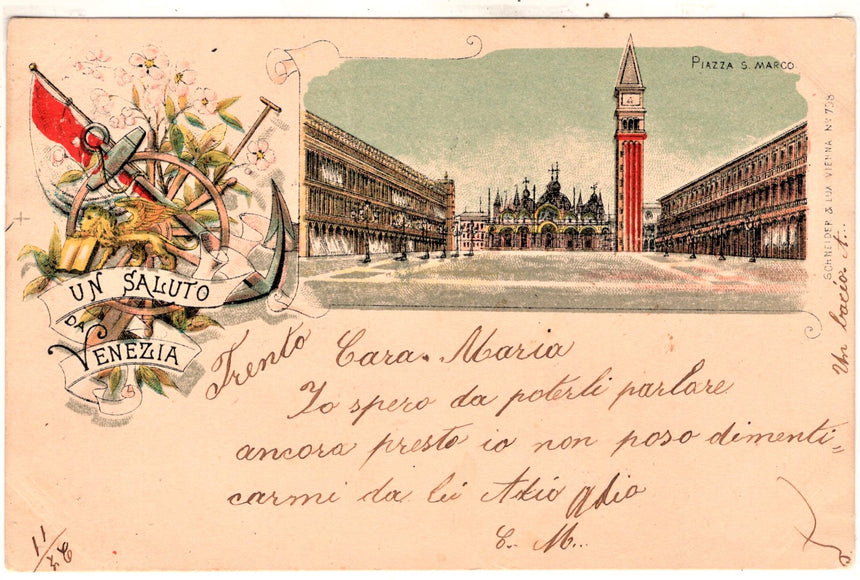 PIAZZA S. MARCO
UN SALUTO
DA
VENEZIA
SCHNEIDER & LUX VIENNA No 708
Trento Cara Maria
Io spero da poterli parlare
ancora presto io non poso dimenti=
carmi da lei Adio
C. M..
Un bacio A...
11